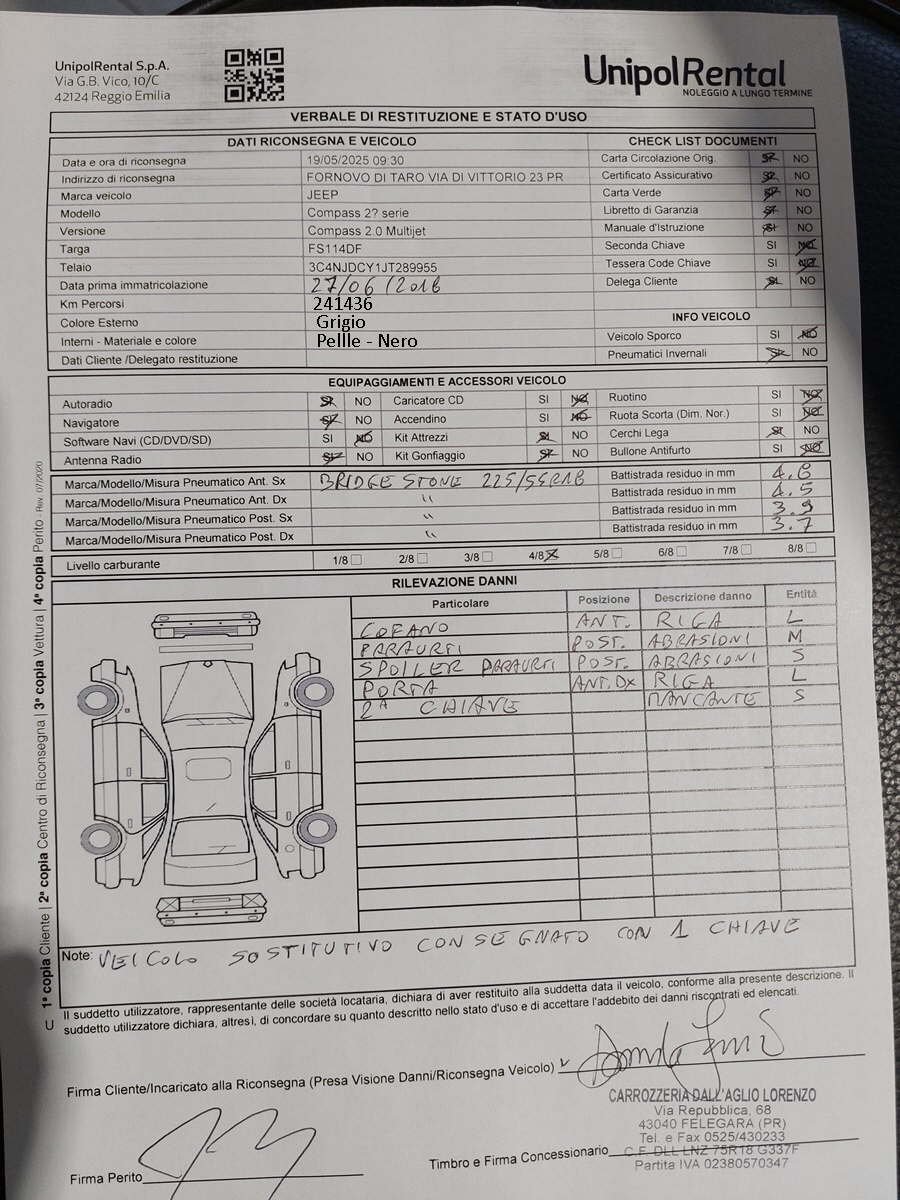 UnipolRental S.p.A.
Via G.B. Vico, 10/C
42124 Reggio Emilia
UnipolRental
NOLEGGIO A LUNGO TERMINE
VERBALE DI RESTITUZIONE E STATO D'USO
DATI RICONSEGNA E VEICOLO
Data e ora di riconsegna 19/05/2025 09:30
Indirizzo di riconsegna FORNOVO DI TARO VIA DI VITTORIO 23 PR
Marca veicolo JEEP
Modello Compass 2? serie
Versione Compass 2.0 Multijet
Targa FS114DF
Telaio 3C4NJDCY1JT289955
Data prima immatricolazione 27/06/2018
Km Percorsi 241436
Colore Esterno Grigio
Interni - Materiale e colore Pellle - Nero
Dati Cliente /Delegato restituzione
CHECK LIST DOCUMENTI
Carta Circolazione Orig. SI NO
Certificato Assicurativo SI NO
Carta Verde SI NO
Libretto di Garanzia SI NO
Manuale d'Istruzione SI NO
Seconda Chiave SI NO
Tessera Code Chiave SI NO
Delega Cliente SI NO
INFO VEICOLO
Veicolo Sporco SI NO
Pneumatici Invernali SI NO
EQUIPAGGIAMENTI E ACCESSORI VEICOLO
Autoradio SI NO Caricatore CD SI NO Ruotino SI NO
Navigatore SI NO Accendino SI NO Ruota Scorta (Dim. Nor.) SI NO
Software Navi (CD/DVD/SD) SI NO Kit Attrezzi SI NO Cerchi Lega SI NO
Antenna Radio SI NO Kit Gonfiaggio SI NO Bullone Antifurto SI NO
Marca/Modello/Misura Pneumatico Ant. Sx BRIDGESTONE 225/55R18 Battistrada residuo in mm 4.6
Marca/Modello/Misura Pneumatico Ant. Dx " Battistrada residuo in mm 4.5
Marca/Modello/Misura Pneumatico Post. Sx " Battistrada residuo in mm 3.9
Marca/Modello/Misura Pneumatico Post. Dx " Battistrada residuo in mm 3.7
Livello carburante 1/8 2/8 3/8 4/8 5/8 6/8 7/8 8/8
RILEVAZIONE DANNI
Particolare Posizione Descrizione danno Entità
COFANO ANT. RIGA L
PARAURTI POST. ABRASIONI M
SPOILER PARAURTI POST. ABRASIONI S
PORTA ANT.Dx RIGA L
2ª CHIAVE MANCANTE S
Note: VEICOLO SOSTITUTIVO CONSEGNATO CON 1 CHIAVE
Il suddetto utilizzatore, rappresentante delle società locataria, dichiara di aver restituito alla suddetta data il veicolo, conforme alla presente descrizione. Il
suddetto utilizzatore dichiara, altresì, di concordare su quanto descritto nello stato d'uso e di accettare l'addebito dei danni riscontrati ed elencati.
Firma Cliente/Incaricato alla Riconsegna (Presa Visione Danni/Riconsegna Veicolo)
CARROZZERIA DALL'AGLIO LORENZO
Via Repubblica, 68
43040 FELEGARA (PR)
Tel. e Fax 0525/430233
C.F. DLL LNZ 75R18 G337F
Partita IVA 02380570347
Firma Perito
Timbro e Firma Concessionario
U 1ª copia Cliente | 2ª copia Centro di Riconsegna | 3ª copia Vettura | 4ª copia Perito - Rev. 07/2020